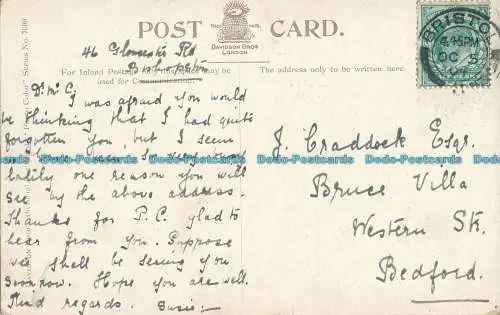 POST CARD.
DAVIDSON BROS
LONDON.
46 Gloucester Rd
Bishopston
For Inland Postage this may be
used for Communication.
The address only to be written here.
BRISTOL
4.45PM
OC 5
Dr. Mr C
I was afraid you would
be thinking that I had quite
forgotten you, but I seem
lately one reason you will
see by the above address.
Thanks for P.C. glad to
hear from you. Suppose
we shall be seeing you
soon now. Hope you are well.
Kind regards. Susie.
J. Craddock Esqr.
Bruce Villa
Western St.
Bedford.
Series No. 7089
Do-Postcards Do-Postcards Do-Postcards Do-Postcards Do-Postcards Do-Postcards